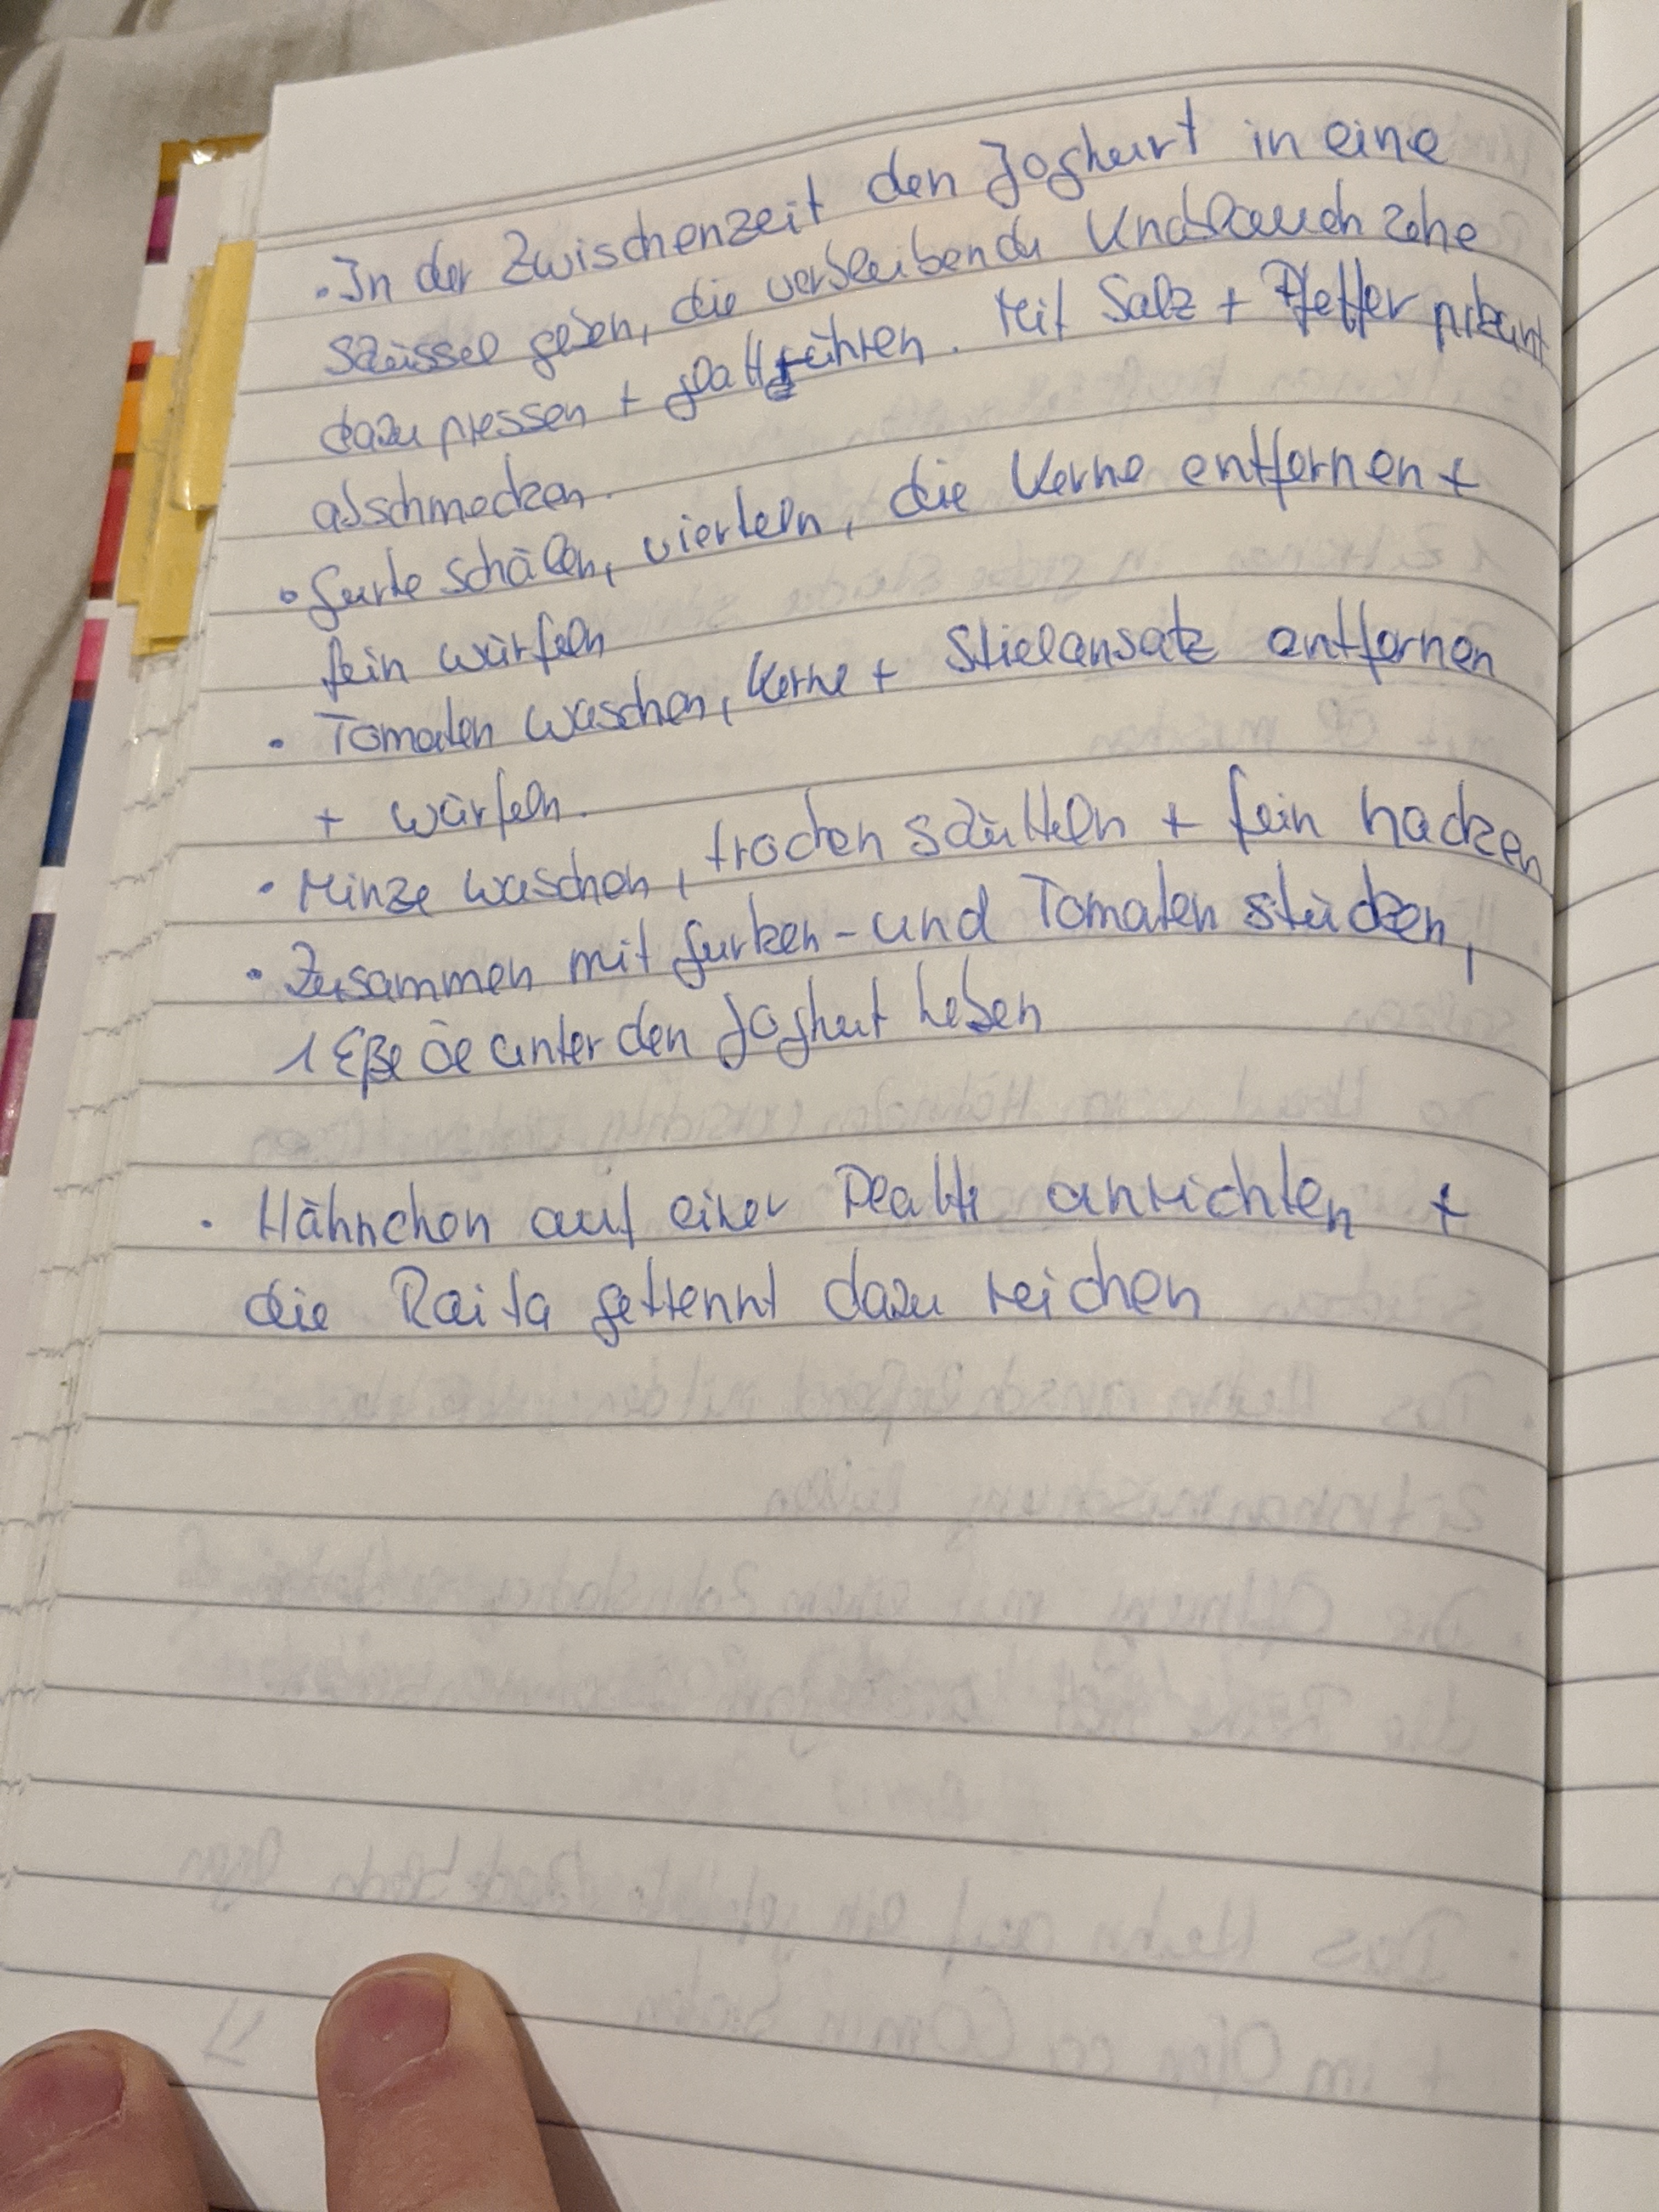 • In der Zwischenzeit den Joghurt in eine
Schüssel geben, die verbleibende Knoblauchzehe
dazu pressen + glattrühren. Mit Salz + Pfeffer pikant
abschmecken.
• Gurke schälen, vierteln, die Kerne entfernen +
fein würfeln
• Tomaten waschen, Kerne + Stielansatz entfernen
+ würfeln.
• Minze waschen, trocken schütteln + fein hacken
• Zusammen mit Gurken- und Tomatenstücken,
1 Eßl Öl unter den Joghurt heben
• Hähnchen auf einer Platte anrichten +
die Raita getrennt dazu reichen